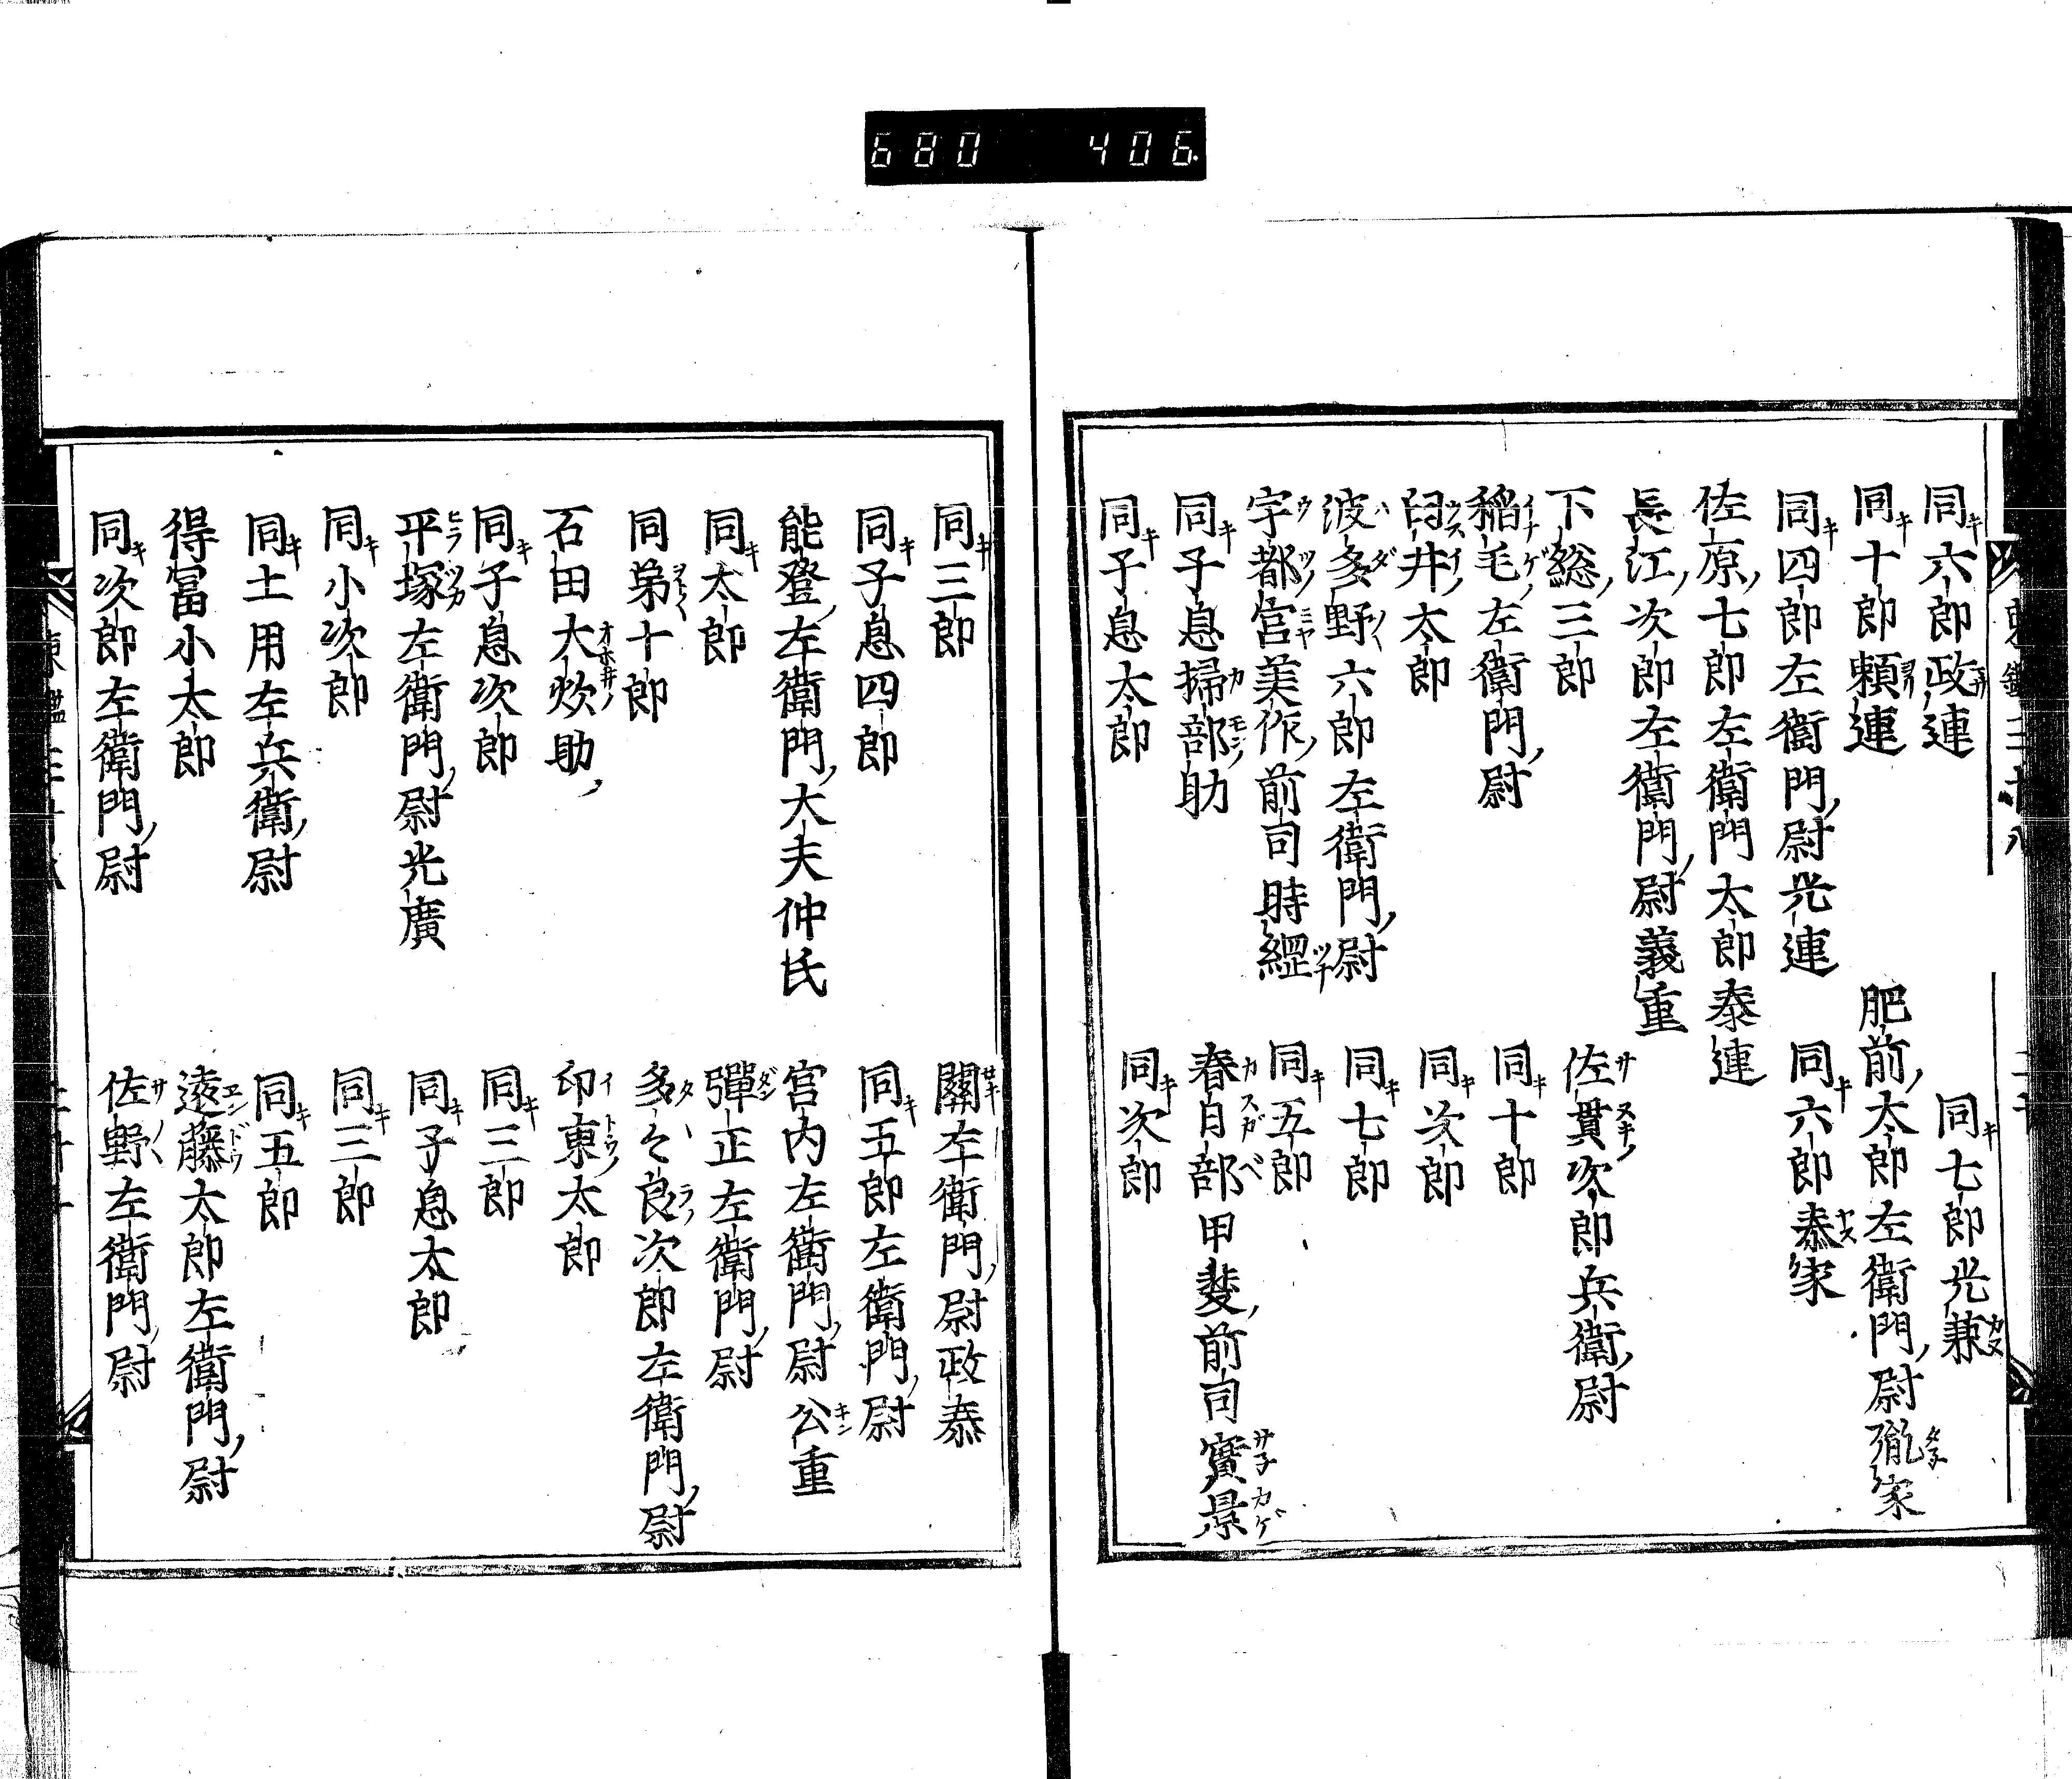 680 406
同六郎政連 同七郎光兼
同十郎頼連 肥前太郎左衛門尉胤家
同四郎左衛門尉光連 同六郎泰家
佐原七郎左衛門太郎泰連
長江次郎左衛門尉義重
下総三郎 佐貫次郎兵衛尉
稲毛左衛門尉 同十郎
臼井太郎 同次郎
波多野六郎左衛門尉 同七郎
宇都宮美作前司時綱 同五郎
同子息掃部助 春日部甲斐前司實景
同子息太郎 同次郎
同三郎 關左衛門尉政泰
同子息四郎 同五郎左衛門尉
能登左衛門大夫仲氏 宮内左衛門尉公重
同太郎 彈正左衛門尉
同弟十郎 多々良次郎左衛門尉
石田大炊助 印東太郎
同子息次郎 同三郎
平塚左衛門尉光廣 同子息太郎
同小次郎 同三郎
同土用左兵衛尉 同五郎
得冨小太郎 遠藤太郎左衛門尉
同次郎左衛門尉 佐野左衛門尉